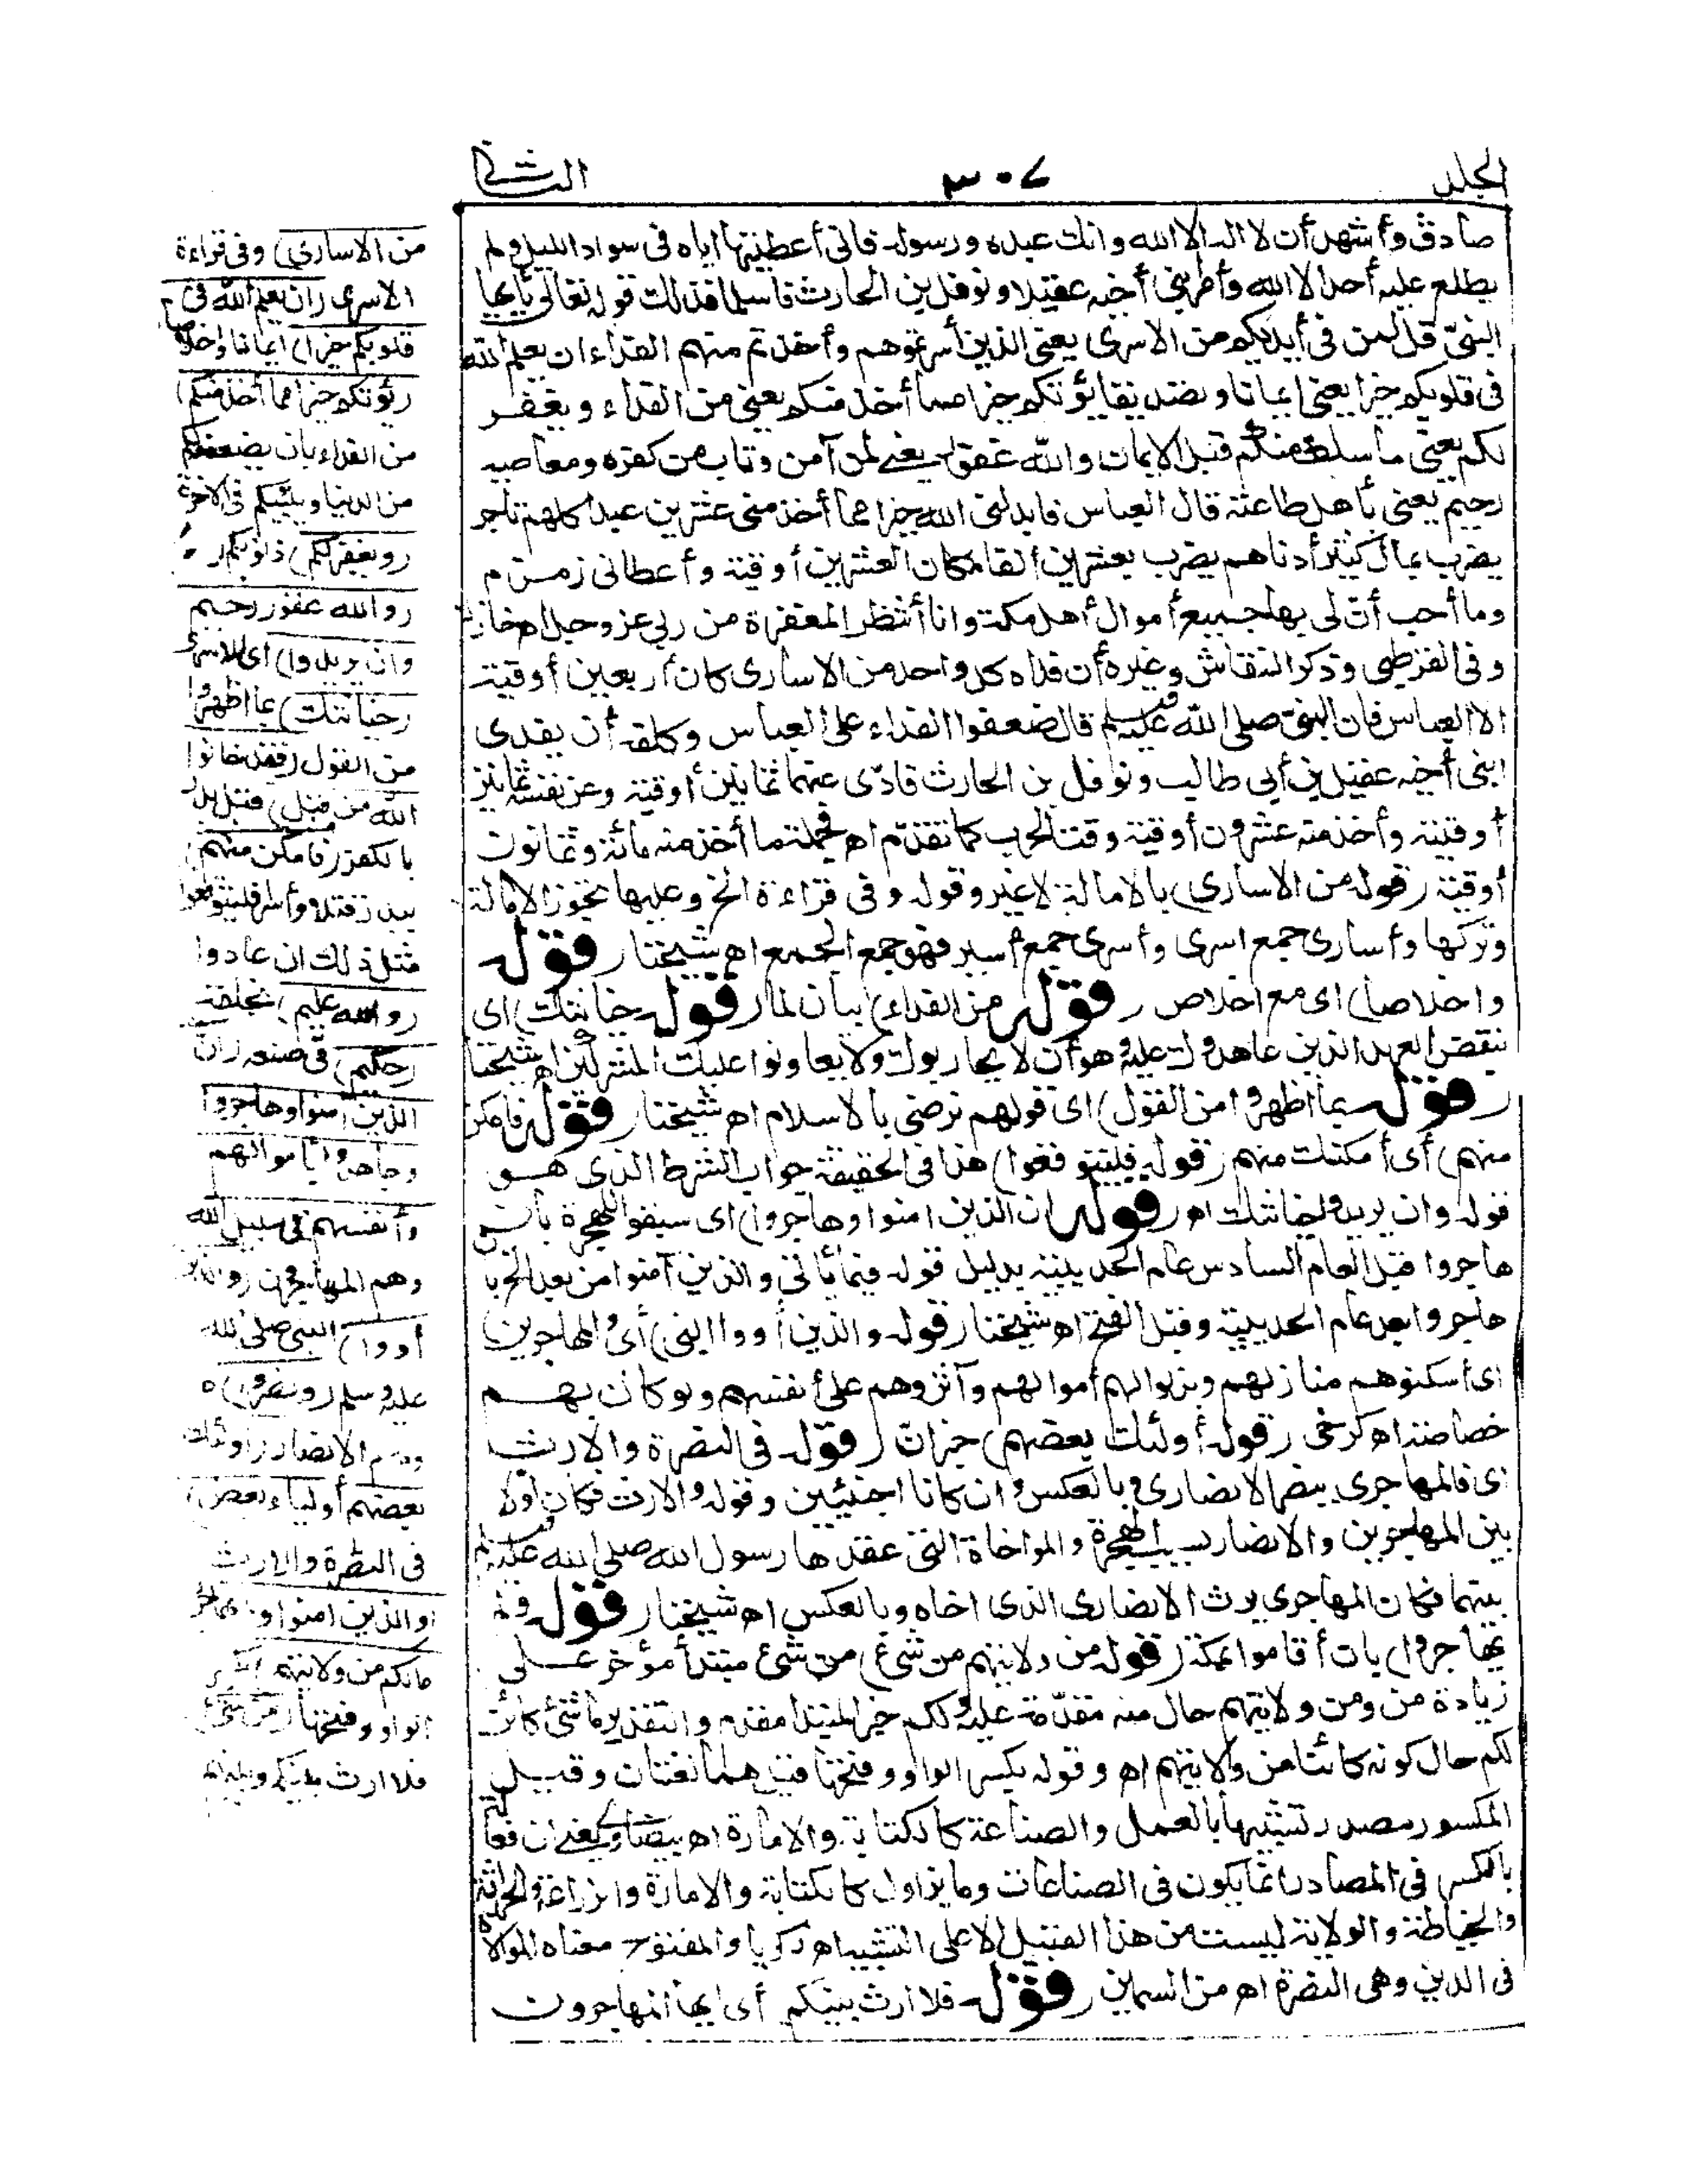 المجلد
٣٠٧
الثانى
صادق وأشهد أن لا اله الا الله وانك عبده ورسوله فانى أعطيتها اياه فى سواد الليل ولم
يطلع عليه أحد الا الله وأمر ابنى أخيه عقيلا ونوفل بن الحارث فاسلما فذلك قوله تعالى يا أيها
النبىّ قل لمن فى أيديكم من الاسرى يعنى الذين أسرتموهم وأخذتم منهم الفداء ان يعلم الله
فى قلوبكم خيرا يعنى ايمانا وتصديقا يؤتكم خيرا مما أخذ منكم يعنى من الفداء ويغفر
لكم يعنى ما سلف منكم قبل الايمان والله غفور يعنى لمن آمن وتاب من كفره ومعاصيه
رحيم يعنى بأهل طاعته قال العباس فابدلنى الله خيرا مما أخذ منى عشرين عبدا كلهم تاجر
يضرب بمال كثير أدناهم يضرب بعشرين ألفا مكان العشرين أوقية وأعطانى زمزم
وما أحب أن لى بها جميع أموال أهل مكة وانا أنتظر المغفرة من ربى عز وجل اه خازن
وفى القرطبى وذكر النقاش وغيره أن فداء كل واحد من الاسارى كان أربعين أوقية
الا العباس فان النبىّ صلى الله عليه وسلم قال ضعفوا الفداء على العباس وكلفه أن يفدى
ابنى أخيه عقيل بن أبى طالب ونوفل بن الحارث فادّى عنهما ثمانين أوقية وعن نفسه ثمانين
أوقية وأخذ منه عشرون أوقية وقت الحرب كما تقدّم اه فجملة ما أخذ منه مائة وثمانون
أوقية (قوله من الاسارى) بالامالة لا غير وقوله وفى قراءة الخ وعليها تجوز الامالة
وتركها وأسارى جمع اسرى وأسرى جمع أسير فهو جمع الجمع اه شيخنا (قوله
واخلاصا) اى مع اخلاص (قوله من الفداء) بيان لما (قوله خيانتك) اى
نقض العهد الذين عاهدوك عليه وهو أن لا يحاربوك ولا يعاونوا عليك المشركين اه شيخنا
(قوله بما أظهروا من القول) اى قولهم نرضى بالاسلام اه شيخنا (قوله فامكن
منهم) أى أمكنك منهم (قوله فليتوقعوا) هذا فى الحقيقة جواب الشرط الذى هو
قوله وان يريدوا خيانتك اه (قوله ان الذين امنوا وهاجروا) اى سبقوا للهجرة بأن
هاجروا قبل العام السادس عام الحديبية بدليل قوله فيما يأتى والذين آمنوا من بعد الخ يا
هاجروا بعد عام الحديبية وقبل الفتح اه شيخنا (قوله والذين أووا النبى) أى والمهاجرين
اى أسكنوهم منازلهم وبذلوا لهم أموالهم وآثروهم على أنفسهم ولو كان بهم
خصاصة اه كرخى (قوله أولئك بعضهم) خبر ان (قوله فى النصرة والارث
اى فالمهاجرى ينصر الانصارى وبالعكس وان كانا اجنبيين وقوله والارث فكان أولا
بين المهاجرين والانصار بسبب الهجرة والمواخاة التى عقدها رسول الله صلى الله عليه وسلم
بينهما فكان المهاجرى يرث الانصارى الذى اخاه وبالعكس اه شيخنا (قوله ولم
يهاجروا) بان أقاموا بمكة (قوله من ولايتهم من شئ) من شئ مبتدأ مؤخر على
زيادة من ومن ولايتهم حال منه مقدّمة عليه ولكم خبر المبتدا مقدم والتقدير ما شئ كائن
لكم حال كونه كائنا من ولايتهم اه وقوله بكسر الواو وفتحها فقيل هما لغتان وقيل
المكسور مصدر تشبيها بالعمل والصناعة كالكتابة والامارة اه بيضاوى يعنى ان فعالة
بالكسر فى المصادر انما يكون فى الصناعات وما يزاول كالكتابة والامارة والزراعة والحراثة
والخياطة والولاية ليست من هذا القبيل الا على التشبيه اه زكريا والمفتوح معناه الموالاة
فى الدين وهى النصرة اه من السمين (قوله فلا ارث بينكم أى ايها المهاجرون
من الاسارى) وفى قراءة
الاسرى (ان يعلم الله فى
قلوبكم خيرا) ايمانا واخلاصا
(يؤتكم خيرا مما أخذ منكم)
من الفداء بان يضعفه لكم
من الدنيا ويثيبكم فى الاخرة
(ويغفر لكم) ذنوبكم
(والله غفور رحيم
وان يريدوا) اى الاسرى
(خيانتك) بما أظهروا
من القول (فقد خانوا
الله من قبل) قبل بدر
بالكفر (فامكن منهم)
ببدر قتلا وأسرا فليتوقعوا
مثل ذلك ان عادوا
(والله عليم) بخلقه
(حكيم) فى صنعه (ان
الذين امنوا وهاجروا
وجاهدوا باموالهم
وأنفسهم فى سبيل الله
وهم المهاجرون (والذين
أووا) النبى صلى الله
عليه وسلم (ونصروا) ه
وهم الانصار (أولئك
بعضهم أولياء بعض)
فى النصرة والارث
(والذين امنوا ولم يهاجروا
مالكم من ولايتهم) بكسر
الواو وفتحها (من شئ)
فلا ارث بينكم وبينهم